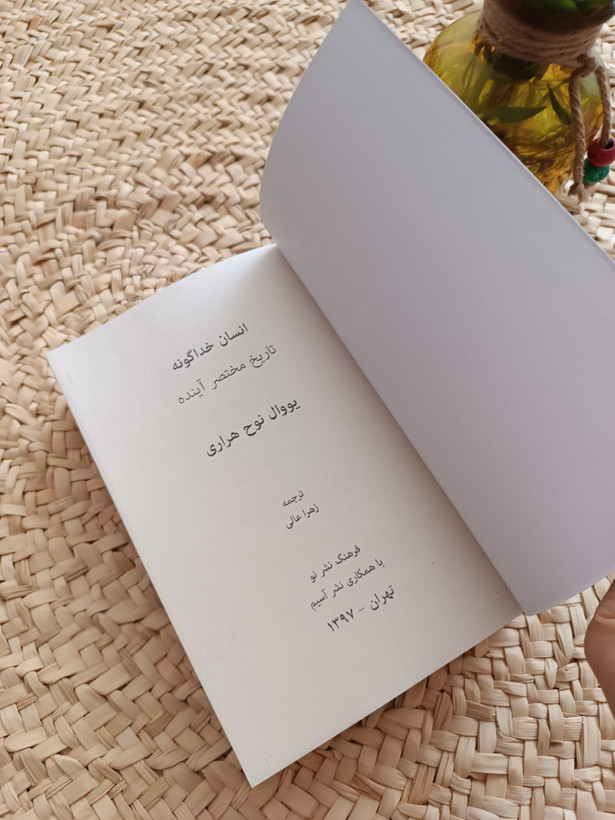 انسان خداگونه
تاریخ مختصر آینده
یووال نوح هراری
ترجمه
زهرا عالی
فرهنگ نشر نو
با همکاری نشر آسیم
تهران - ۱۳۹۷